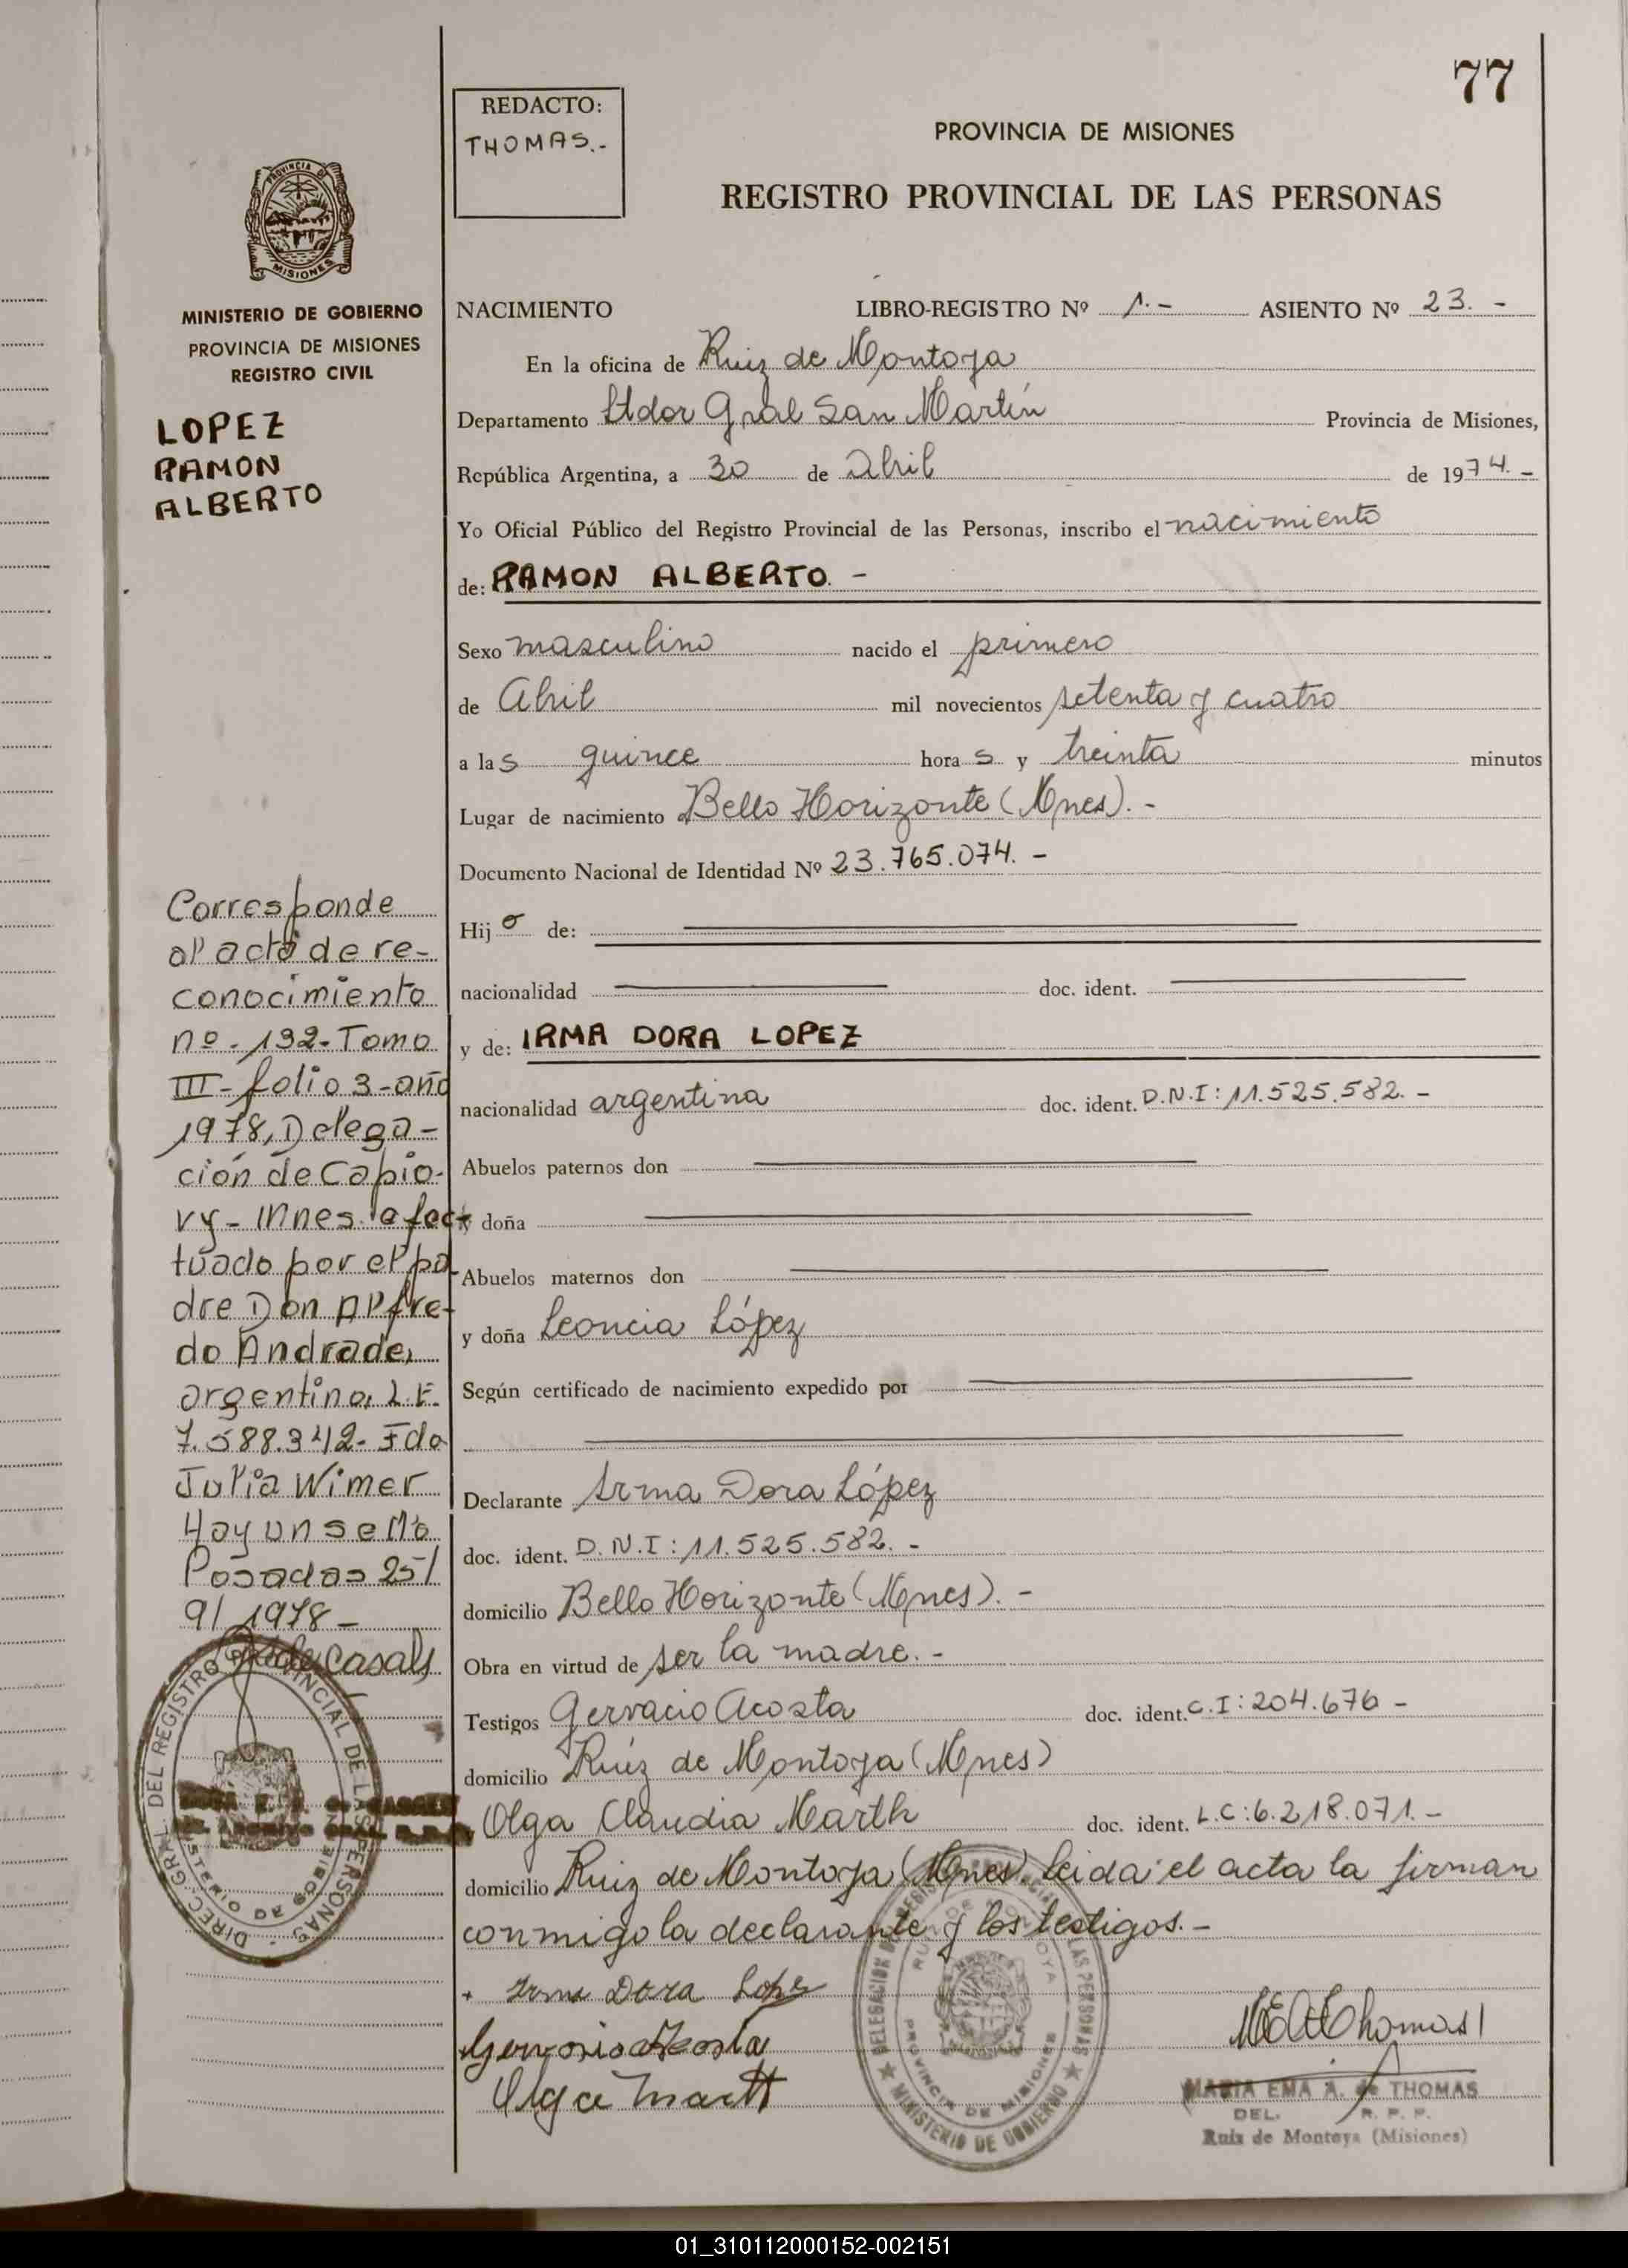 77
REDACTO:
THOMAS.-
PROVINCIA DE MISIONES
REGISTRO PROVINCIAL DE LAS PERSONAS
PROVINCIA DE
MISIONES
MINISTERIO DE GOBIERNO
PROVINCIA DE MISIONES
REGISTRO CIVIL
LOPEZ
RAMON
ALBERTO
NACIMIENTO LIBRO-REGISTRO Nº 1.- ASIENTO Nº 23. -
En la oficina de Ruiz de Montoya
Departamento Ltdor Gral San Martín Provincia de Misiones,
República Argentina, a 30 de Abril de 1974.-
Yo Oficial Público del Registro Provincial de las Personas, inscribo el nacimiento
de: RAMON ALBERTO. -
Sexo masculino nacido el primero
de Abril mil novecientos setenta y cuatro
a las quince horas y treinta minutos
Lugar de nacimiento Bello Horizonte (Mnes). -
Documento Nacional de Identidad Nº 23.765.074. -
Hijo de:
nacionalidad doc. ident.
y de: IRMA DORA LOPEZ
nacionalidad argentina doc. ident. D.N.I: 11.525.582. -
Abuelos paternos don
y doña
Abuelos maternos don
y doña Leoncia López
Según certificado de nacimiento expedido por
Declarante Irma Dora López
doc. ident. D.N.I: 11.525.582. -
domicilio Bello Horizonte (Mnes). -
Obra en virtud de ser la madre. -
Testigos Gervacio Acosta doc. ident. C.I: 204.676 -
domicilio Ruíz de Montoya (Mnes)
Olga Claudia Marth doc. ident. L.C: 6.218.071. -
domicilio Ruiz de Montoya (Mnes). leida el acta la firman
conmigo la declarante y los testigos. -
Corresponde
al acta de re-
conocimiento
nº - 132 - Tomo
III - folio 3 - año
1978, Delega-
ción de Capio-
vy - Mnes. efec-
tuado por el pa-
dre Don Alfre-
do Andrade,
argentino, L.E.
7.588.342 - Fdo
Julia Wimer
Hay un sello
Posadas 25/
9/1978 -
de Casals
DIREC. GRAL. DEL REGISTRO PROVINCIAL DE LAS PERSONAS
MINISTERIO DE GOBIERNO
+ Irma Dora Lopez
Gervasio Acosta
Olga Marth
DELEGACION DEL REGISTRO PROVINCIAL DE LAS PERSONAS
RUIZ DE MONTOYA
PROVINCIA DE MISIONES
MINISTERIO DE GOBIERNO
MEA Thomas
MARIA EMA A. de THOMAS
DEL. R. P. P.
Ruiz de Montoya (Misiones)
01_310112000152-002151